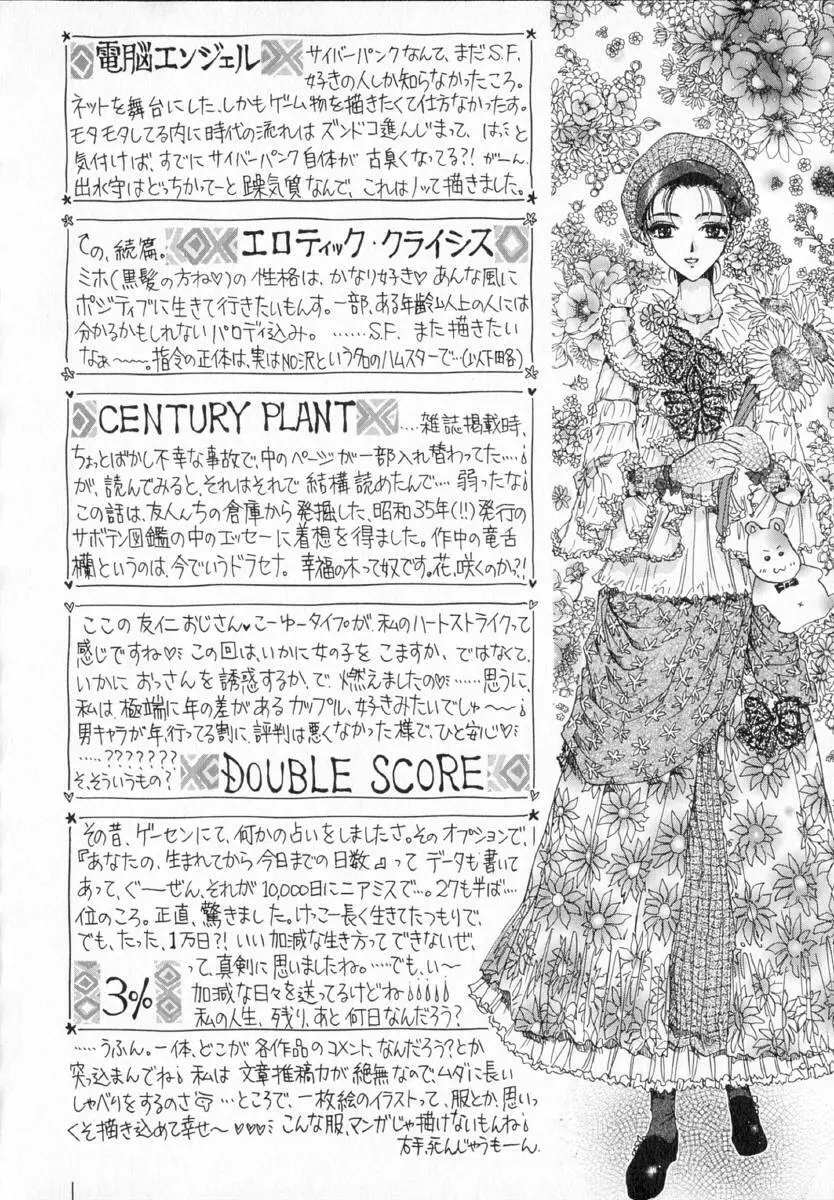 電脳エンジェル サイバーパンクなんて、まだS.F.
好きの人しか知らなかったころ。
ネットを舞台にした、しかもゲーム物を描きたくて仕方なかったす。
モタモタしてる内に時代の流れはズンドコ進んじまって、はっと
気付けば、すでにサイバーパンク自体が古臭くなってる?!がーん。
出水守はどっちかってーと躁気質なんで、これはノッて描きました。
での、続篇。エロティック・クライシス
ミホ(黒髪の方ね♡)の性格は、かなり好き♡あんな風に
ポジティブに生きて行きたいもんす。一部、ある年齢以上の人には
分かるかもしれないパロディ込み。……S.F.また描きたい
なぁ〜〜。指令の正体は、実はNO沢という名のハムスターで…(以下略)
CENTURY PLANT ….雑誌掲載時、
ちょっとばかし不幸な事故で、中のページが一部入れ替わってた…。
が、読んでみると、それはそれで結構読めたんで…弱ったな。
この話は、友人んちの倉庫から発掘した、昭和35年(!!)発行の
サボテン図鑑の中のエッセーに着想を得ました。作中の竜舌
欄というのは、今でいうドラセナ。幸福の木って奴です。花、咲くのか?!
ここの友仁おじさん♥こーゆータイプが、私のハートストライクって
感じですね♡この回は、いかに女の子をこますか、ではなくて、
いかにおっさんを誘惑するか、で、燃えましたの♡……思うに、
私は、極端に年の差があるカップル、好きみたいでしゅ〜。
男キャラが年、行ってる割に、評判は悪くなかった様で、ひと安心♡
……???????
そ、そういうもの? DOUBLE SCORE
その昔、ゲーセンにて、何かの占いをしましたさ。そのオプションで、
『あなたの、生まれてから今日までの日数』ってデータも書いて
あって、ぐーぜん、それが10,000日にニアミスで…。27も半ば…
位のころ。正直、驚きました。けっこー長く生きてたつもりで、
でも、たった、1万日?!いい加減な生き方ってできないぜ、
って、真剣に思いましたね。……でも、い〜
加減な日々を送ってるけどね
3% 私の人生、残り、あと何日なんだろう?
……うふん。一体、どこが各作品のコメント、なんだろう?とか
突っ込まんでね。私は文章推稿力が絶無なので、ムダに長い
しゃべりをするのさ…ところで、一枚絵のイラストって、服とか、思いっ
くそ描き込めて幸せ〜♡♡♡こんな服、マンガじゃ描けないもんね。
右手、死んじゃうもーん。